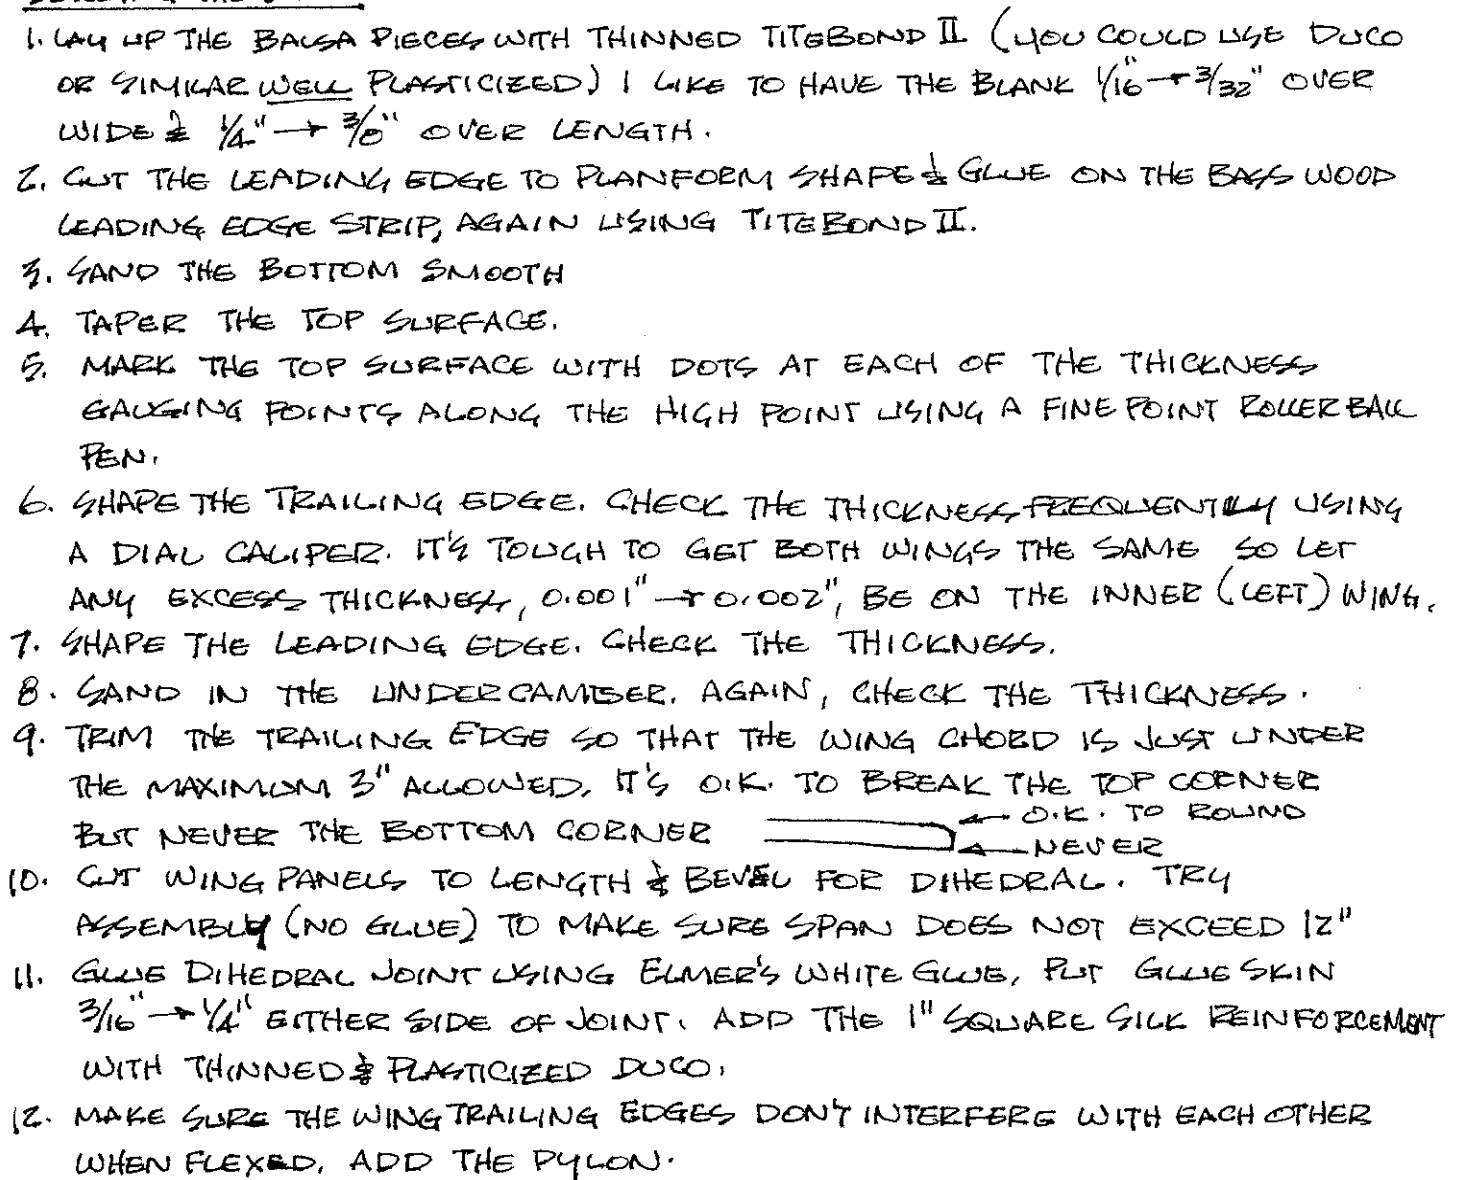 1. LAY UP THE BALSA PIECES WITH THINNED TITEBOND II (YOU COULD USE DUCO
OR SIMILAR WELL PLASTICIZED) I LIKE TO HAVE THE BLANK 1/16 → 3/32" OVER
WIDE & 1/4" → 3/8" OVER LENGTH.
2. CUT THE LEADING EDGE TO PLANFORM SHAPE & GLUE ON THE BASS WOOD
LEADING EDGE STRIP, AGAIN USING TITEBOND II.
3. SAND THE BOTTOM SMOOTH
4. TAPER THE TOP SURFACE.
5. MARK THE TOP SURFACE WITH DOTS AT EACH OF THE THICKNESS
GAUGING POINTS ALONG THE HIGH POINT USING A FINE POINT ROLLER BALL
PEN.
6. SHAPE THE TRAILING EDGE. CHECK THE THICKNESS FREQUENTLY USING
A DIAL CALIPER. IT'S TOUGH TO GET BOTH WINGS THE SAME SO LET
ANY EXCESS THICKNESS, 0.001" → 0.002", BE ON THE INNER (LEFT) WING.
7. SHAPE THE LEADING EDGE. CHECK THE THICKNESS.
8. SAND IN THE UNDERCAMBER. AGAIN, CHECK THE THICKNESS.
9. TRIM THE TRAILING EDGE SO THAT THE WING CHORD IS JUST UNDER
THE MAXIMUM 3" ALLOWED. IT'S O.K. TO BREAK THE TOP CORNER
BUT NEVER THE BOTTOM CORNER
← O.K. TO ROUND
← NEVER
10. CUT WING PANELS TO LENGTH & BEVEL FOR DIHEDRAL. TRY
ASSEMBLY (NO GLUE) TO MAKE SURE SPAN DOES NOT EXCEED 12"
11. GLUE DIHEDRAL JOINT USING ELMER'S WHITE GLUE. PUT GLUE SKIN
3/16" → 1/4" EITHER SIDE OF JOINT. ADD THE 1" SQUARE SILK REINFORCEMENT
WITH THINNED & PLASTICIZED DUCO.
12. MAKE SURE THE WING TRAILING EDGES DON'T INTERFERE WITH EACH OTHER
WHEN FLEXED. ADD THE PYLON.